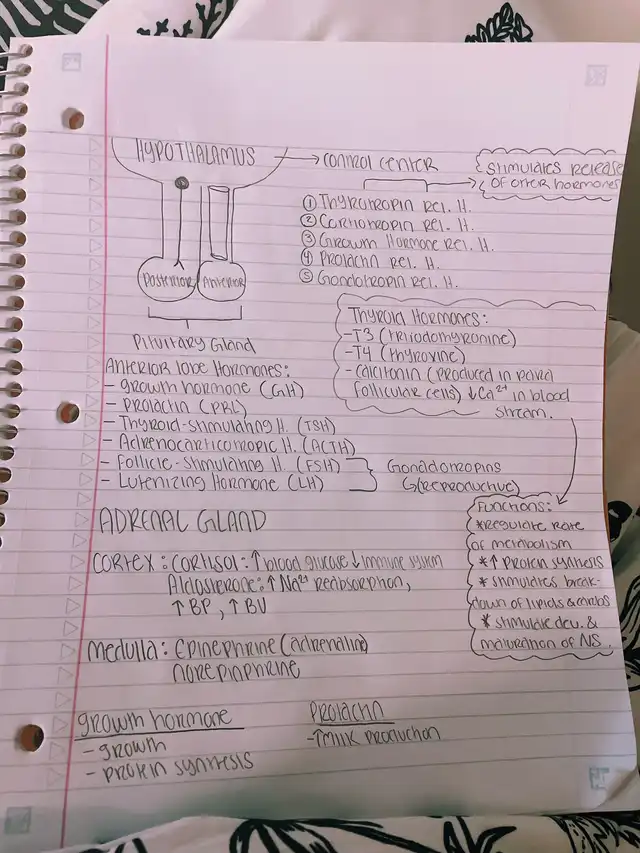 HYPOTHALAMUS → control center
stimulates release
of other hormones
① Thyrotropin Rel. H.
② Corticotropin Rel. H.
③ Growth Hormone Rel. H.
④ Prolactin Rel. H.
⑤ Gondotropin Rel. H.
Posterior Anterior
Pituitary Gland
Thyroid Hormones:
-T3 (triiodothyronine)
-T4 (thyroxine)
-calcitonin (produced in
follicular cells) ↓Ca²⁺ in blood
stream.
Anterior lobe Hormones:
- growth hormone (GH)
- Prolactin (PRL)
- Thyroid-stimulating H. (TSH)
- Adrenocorticotropic H. (ACTH)
- Follicle-stimulating H. (FSH)
- Lutenizing Hormone (LH)
Gonadotropins
(reproductive)
Functions:
*regulate rate
of metabolism
*↑ protein synthesis
* stimulates break-
down of lipids & carbs
* stimulate dev. &
maturation of NS.
ADRENAL GLAND
CORTEX: CORTISOL: ↑ blood glucose ↓ immune system
Aldosterone: ↑ Na²⁺ reabsorption,
↑ BP, ↑ BV
Medulla: Epinephrine (adrenaline)
norepinephrine
growth hormone
- growth
- protein synthesis
Prolactin
-↑milk production